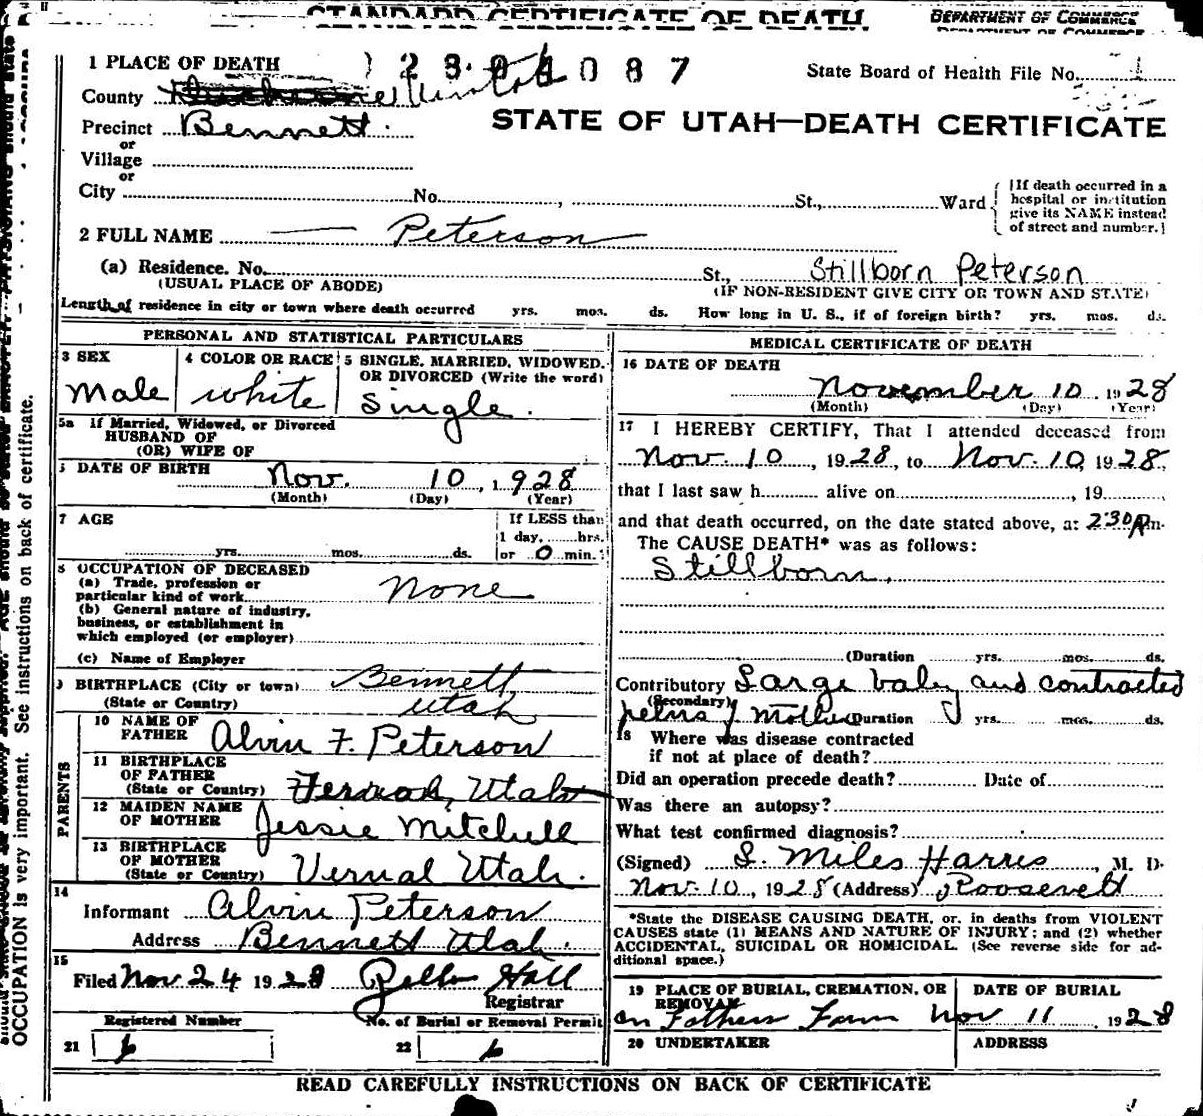 STANDARD CERTIFICATE OF DEATH
DEPARTMENT OF COMMERCE
1 PLACE OF DEATH
State Board of Health File No.
County Uintah
Precinct Bennett.
STATE OF UTAH—DEATH CERTIFICATE
or
Village
or
City No. , St., Ward
{If death occurred in a hospital or institution give its NAME instead of street and number.}
2 FULL NAME — Peterson
(a) Residence. No. St., Stillborn Peterson
(USUAL PLACE OF ABODE) (IF NON-RESIDENT GIVE CITY OR TOWN AND STATE)
Length of residence in city or town where death occurred yrs. mos. ds. How long in U. S., if of foreign birth? yrs. mos. ds.
PERSONAL AND STATISTICAL PARTICULARS
3 SEX
Male
4 COLOR OR RACE
white
5 SINGLE, MARRIED, WIDOWED, OR DIVORCED (Write the word)
Single.
5a If Married, Widowed, or Divorced
HUSBAND OF
(OR) WIFE OF
DATE OF BIRTH Nov. 10, 1928
(Month) (Day) (Year)
7 AGE
yrs. mos. ds.
If LESS than
1 day, hrs.
or 0 min.
8 OCCUPATION OF DECEASED
(a) Trade, profession or
particular kind of work None
(b) General nature of industry,
business, or establishment in
which employed (or employer)
(c) Name of Employer
BIRTHPLACE (City or town) Bennett
(State or Country) Utah
PARENTS
10 NAME OF
FATHER Alvin F. Peterson
11 BIRTHPLACE
OF FATHER
(State or Country) Utah
12 MAIDEN NAME
OF MOTHER Jessie Mitchell
13 BIRTHPLACE
OF MOTHER
(State or Country) Vernal Utah.
14
Informant Alvin Peterson
Address Bennett Utah.
15
Filed Nov 24 1928 Hall
Registrar
Registered Number No. of Burial or Removal Permit
21 6 22 6
MEDICAL CERTIFICATE OF DEATH
16 DATE OF DEATH
November 10 1928
(Month) (Day) (Year)
17 I HEREBY CERTIFY, That I attended deceased from
Nov. 10, 1928, to Nov. 10, 1928,
that I last saw h alive on , 19
and that death occurred, on the date stated above, at 2:30 Pm.
The CAUSE DEATH* was as follows:
Stillborn.
(Duration yrs. mos. ds.
Contributory Large baby and contracted
(Secondary)
pelvis of Mother Duration yrs. mos. ds.
18 Where was disease contracted
if not at place of death?
Did an operation precede death? Date of
Was there an autopsy?
What test confirmed diagnosis?
(Signed) L. Miles Harris, M. D.
Nov. 10, 1928 (Address) Roosevelt
*State the DISEASE CAUSING DEATH, or, in deaths from VIOLENT
CAUSES state (1) MEANS AND NATURE OF INJURY; and (2) whether
ACCIDENTAL, SUICIDAL OR HOMICIDAL. (See reverse side for ad-
ditional space.)
19 PLACE OF BURIAL, CREMATION, OR
REMOVAL
on Fathers Farm
DATE OF BURIAL
Nov 11 1928
20 UNDERTAKER ADDRESS
READ CAREFULLY INSTRUCTIONS ON BACK OF CERTIFICATE
OCCUPATION is very important. See instructions on back of certificate.